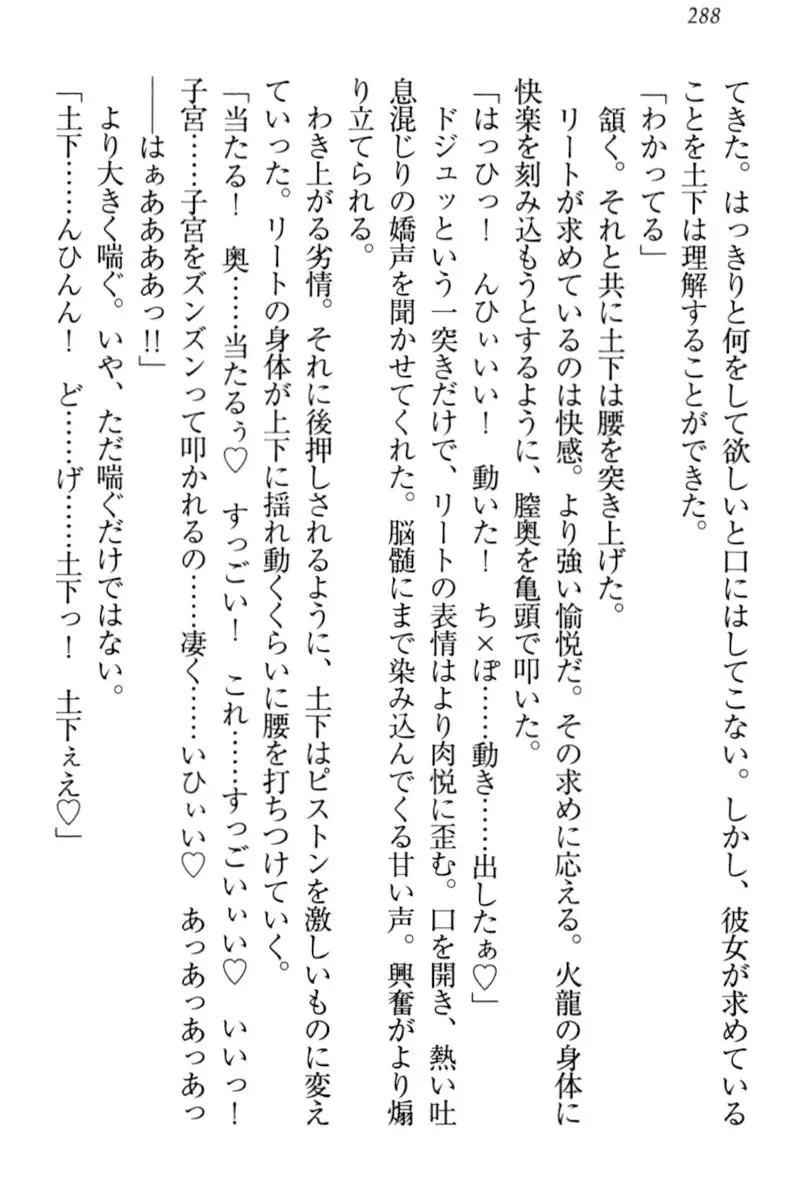 288
てきた。はっきりと何をして欲しいと口にはしてこない。しかし、彼女が求めている
ことを土下は理解することができた。
「わかってる」
頷く。それと共に土下は腰を突き上げた。
リートが求めているのは快感。より強い愉悦だ。その求めに応える。火龍の身体に
快楽を刻み込もうとするように、膣奥を亀頭で叩いた。
「はっひっ！　んひぃいい！　動いた！　ち×ぽ……動き……出したぁ♡」
ドジュッという一突きだけで、リートの表情はより肉悦に歪む。口を開き、熱い吐
息混じりの嬌声を聞かせてくれた。脳髄にまで染み込んでくる甘い声。興奮がより煽
り立てられる。
わき上がる劣情。それに後押しされるように、土下はピストンを激しいものに変え
ていった。リートの身体が上下に揺れ動くくらいに腰を打ちつけていく。
「当たる！　奥……当たるぅ♡　すっごい！　これ……すっごいぃい♡　いいっ！
子宮……子宮をズンズンって叩かれるの……凄く……いひぃい♡　あっあっあっあっ
――はぁああああっ!!」
より大きく喘ぐ。いや、ただ喘ぐだけではない。
「土下……んひんん！　ど……げ……土下っ！　土下ぇえ♡」